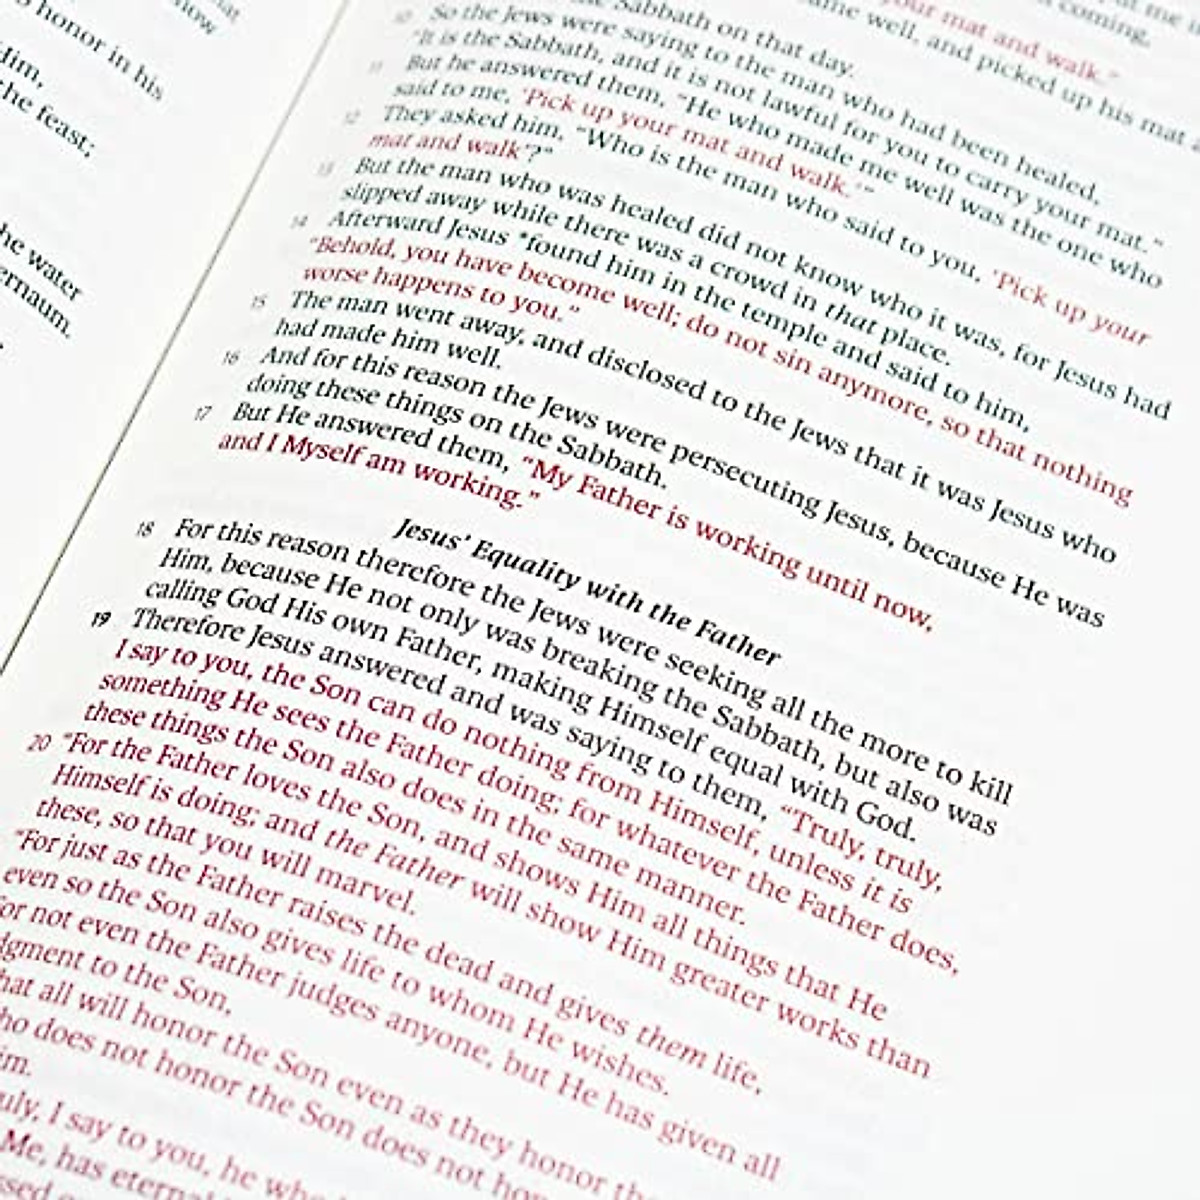 honor in his
Him,
the feast;
he water
ernaum.
your mat and walk."
coming,
me well, and picked up his mat
Sabbath on that day.
10 So the Jews were saying to the man who had been healed,
"It is the Sabbath, and it is not lawful for you to carry your mat."
11 But he answered them, "He who made me well was the one who
said to me, 'Pick up your mat and walk.'"
12 They asked him, "Who is the man who said to you, 'Pick up your
mat and walk'?"
13 But the man who was healed did not know who it was, for Jesus had
slipped away while there was a crowd in that place.
14 Afterward Jesus *found him in the temple and said to him,
"Behold, you have become well; do not sin anymore, so that nothing
worse happens to you."
15 The man went away, and disclosed to the Jews that it was Jesus who
had made him well.
16 And for this reason the Jews were persecuting Jesus, because He was
doing these things on the Sabbath.
17 But He answered them, "My Father is working until now,
and I Myself am working."
Jesus' Equality with the Father
18 For this reason therefore the Jews were seeking all the more to kill
Him, because He not only was breaking the Sabbath, but also was
calling God His own Father, making Himself equal with God.
19 Therefore Jesus answered and was saying to them, "Truly, truly,
I say to you, the Son can do nothing from Himself, unless it is
something He sees the Father doing; for whatever the Father does,
these things the Son also does in the same manner.
20 "For the Father loves the Son, and shows Him all things that He
Himself is doing; and the Father will show Him greater works than
these, so that you will marvel.
"For just as the Father raises the dead and gives them life,
even so the Son also gives life to whom He wishes.
for not even the Father judges anyone, but He has given all
dgment to the Son,
hat all will honor the Son even as they honor the
ho does not honor the Son does not hon
im.
uly, I say to you, he who
Me, has eternal